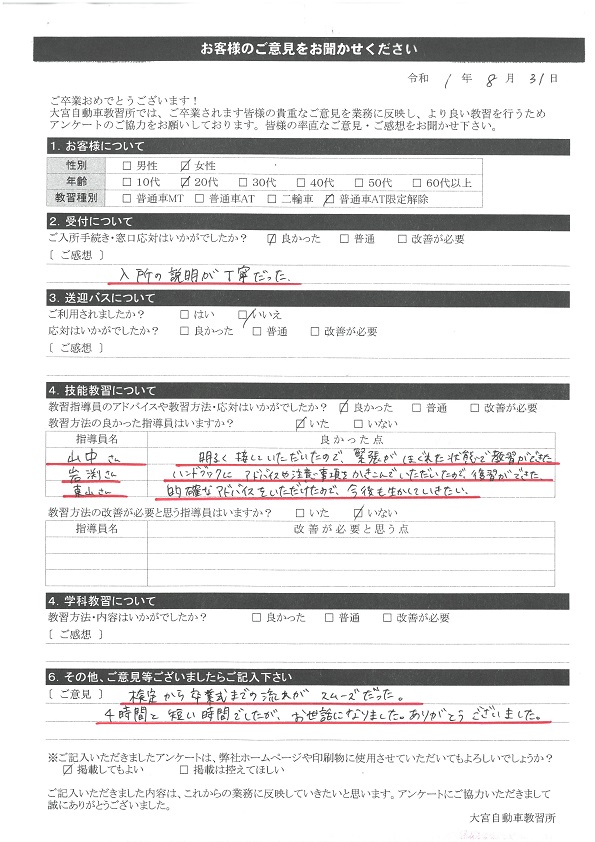 お客様のご意見をお聞かせください
令和 1 年 8 月 31 日
ご卒業おめでとうございます！
大宮自動車教習所では、ご卒業されます皆様の貴重なご意見を業務に反映し、より良い教習を行うため
アンケートのご協力をお願いしております。皆様の率直なご意見・ご感想をお聞かせ下さい。
1. お客様について
性別 □ 男性 ☑ 女性
年齢 □ 10代 ☑ 20代 □ 30代 □ 40代 □ 50代 □ 60代以上
教習種別 □ 普通車MT □ 普通車AT □ 二輪車 ☑ 普通車AT限定解除
2. 受付について
ご入所手続き・窓口応対はいかがでしたか？ ☑ 良かった □ 普通 □ 改善が必要
〔 ご感想 〕
入所の説明が丁寧だった。
3. 送迎バスについて
ご利用されましたか？ □ はい ☑ いいえ
応対はいかがでしたか？ □ 良かった □ 普通 □ 改善が必要
〔 ご感想 〕
4. 技能教習について
教習指導員のアドバイスや教習方法・応対はいかがでしたか？ ☑ 良かった □ 普通 □ 改善が必要
教習方法の良かった指導員はいますか？ ☑ いた □ いない
指導員名 良かった点
山中さん 明るく接していただいたので、緊張がほぐれた状態で教習ができた
岩渕さん ハンドブックにアドバイスや注意事項をかきこんでいただいたので、復習ができた
東山さん 的確なアドバイスをいただけたので、今後も生かしていきたい。
教習方法の改善が必要と思う指導員はいますか？ □ いた ☑ いない
指導員名 改善が必要と思う点
4. 学科教習について
教習方法・内容はいかがでしたか？ □ 良かった □ 普通 □ 改善が必要
〔 ご感想 〕
6. その他、ご意見等ございましたらご記入下さい
〔 ご意見 〕 検定から卒業式までの流れがスムーズだった。
4時間と短い時間でしたが、お世話になりました。ありがとうございました。
※ご記入いただきましたアンケートは、弊社ホームページや印刷物に使用させていただいてもよろしいでしょうか？
☑ 掲載してもよい □ 掲載は控えてほしい
ご記入いただきました内容は、これからの業務に反映していきたいと思います。アンケートにご協力いただきまして
誠にありがとうございました。
大宮自動車教習所